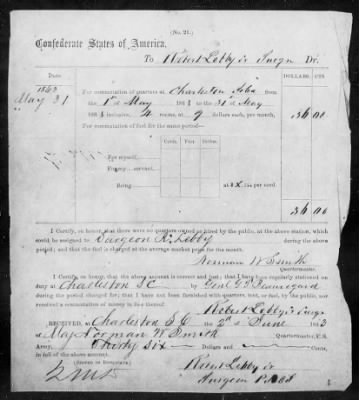 (No. 21.)
Confederate States of America,
To Robert Lebby Jr Surgn Dr.
DATE DOLLARS. CTS.
1863
May 31 For commutation of quarters at Charleston So Ca from
the 1st May 1863 to the 31st May
1863 inclusive, 4 rooms, at 9 dollars each, per month, 36 00
For commutation of fuel for the same period—
Cords. Feet. Inches.
For myself,
For my servant,
Being at $ per cord
36 00
I Certify, on honor, that there were no quarters owned or hired by the public, at the above station, which
could be assigned to Surgeon R. Lebby during the above
period; and that the fuel is charged at the average market price for the month.
Norman W Smith
Quartermaster.
I Certify, on honor, that the above account is correct and just; that I have been regularly stationed on
duty at Charleston S C by Genl G T Beauregard
during the period charged for; that I have not been furnished with quarters, tent, or fuel, by the public, nor
received a commutation of money in lieu thereof.
Robert Lebby Jr Surgn
RECEIVED, at Charleston S C on 2d of June 1863
of Maj Norman W Smith
Army, Thirty Six Dollars and Cents,
in full of the above account.
(SIGNED IN DUPLICATE.)
Robert Lebby Jr
Surgeon